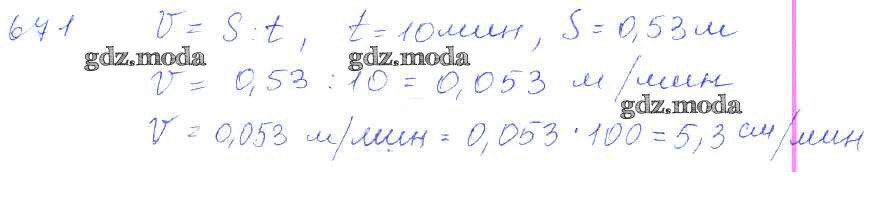 671 V = S : t, t = 10 мин, S = 0,53 м
gdz.moda gdz.moda
V = 0,53 : 10 = 0,053 м/мин
gdz.moda
V = 0,053 м/мин = 0,053 · 100 = 5,3 см/мин